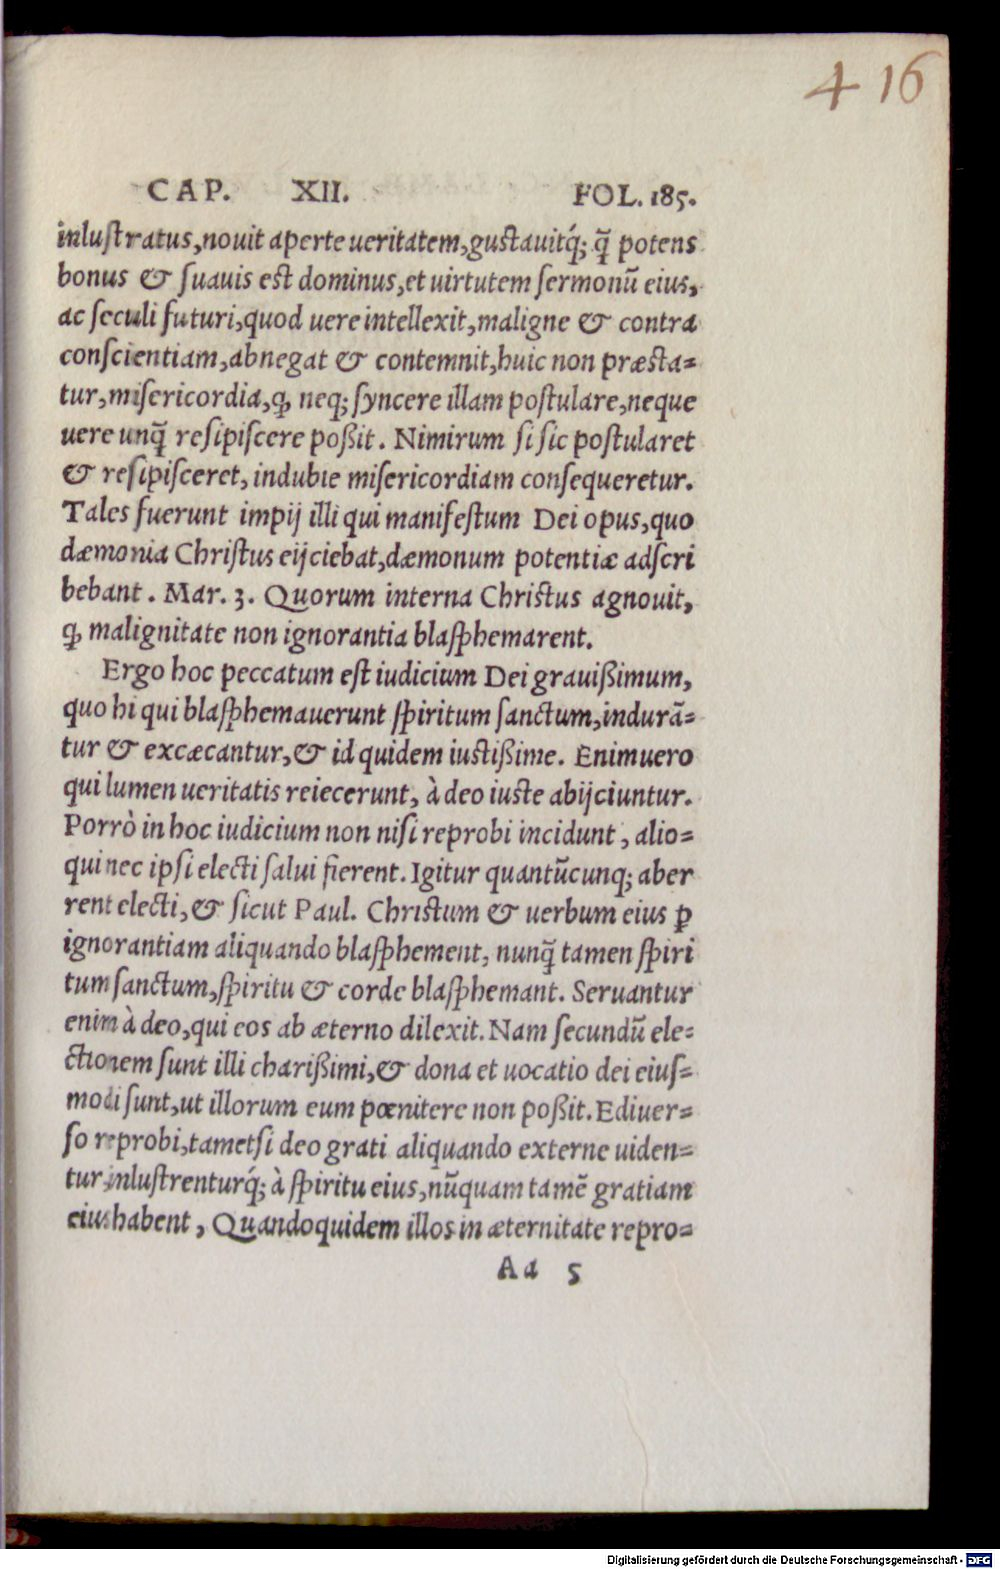 4 16
CAP. XII. FOL. 185.
inluſtratus,nouit aperte ueritatem,guſtauitq́; q̃ potens
bonus & ſuauis eſt dominus,et uirtutem ſermonũ eius,
ac ſeculi futuri,quod uere intellexit,maligne & contra
conſcientiam,abnegat & contemnit,huic non præſta=
tur,miſericordia,ꝙ neq; ſyncere illam poſtulare,neque
uere unq̃ reſipiſcere poßit. Nimirum ſi ſic poſtularet
& reſipiſceret, indubie miſericordiam conſequeretur.
Tales fuerunt impij illi qui manifeſtum Dei opus,quo
dæmonia Chriſtus eijciebat,dæmonum potentiæ adſcri
bebant. Mar. 3. Quorum interna Chriſtus agnouit,
ꝙ malignitate non ignorantia blaſphemarent.
Ergo hoc peccatum eſt iudicium Dei grauißimum,
quo hi qui blaſphemauerunt ſpiritum ſanctum,indurã=
tur & excæcantur,& id quidem iuſtißime. Enimuero
qui lumen ueritatis reiecerunt, à deo iuſte abijciuntur.
Porrò in hoc iudicium non niſi reprobi incidunt, alio=
qui nec ipſi electi ſalui fierent. Igitur quantũcunq; aber
rent electi,& ſicut Paul. Chriſtum & uerbum eius ꝑ
ignorantiam aliquando blaſphement, nunq̃ tamen ſpiri
tum ſanctum,ſpiritu & corde blaſphemant. Seruantur
enim à deo,qui eos ab æterno dilexit. Nam ſecundũ ele=
ctionem ſunt illi charißimi,& dona et uocatio dei eiuſ=
modi ſunt,ut illorum eum pœnitere non poßit. Ediuer=
ſo reprobi,tametſi deo grati aliquando externe uiden=
tur,inluſtrenturq́; à ſpiritu eius,nũquam tamẽ gratiam
eius habent, Quandoquidem illos in æternitate repro=
Aa 5
Digitalisierung gefördert durch die Deutsche Forschungsgemeinschaft - DFG